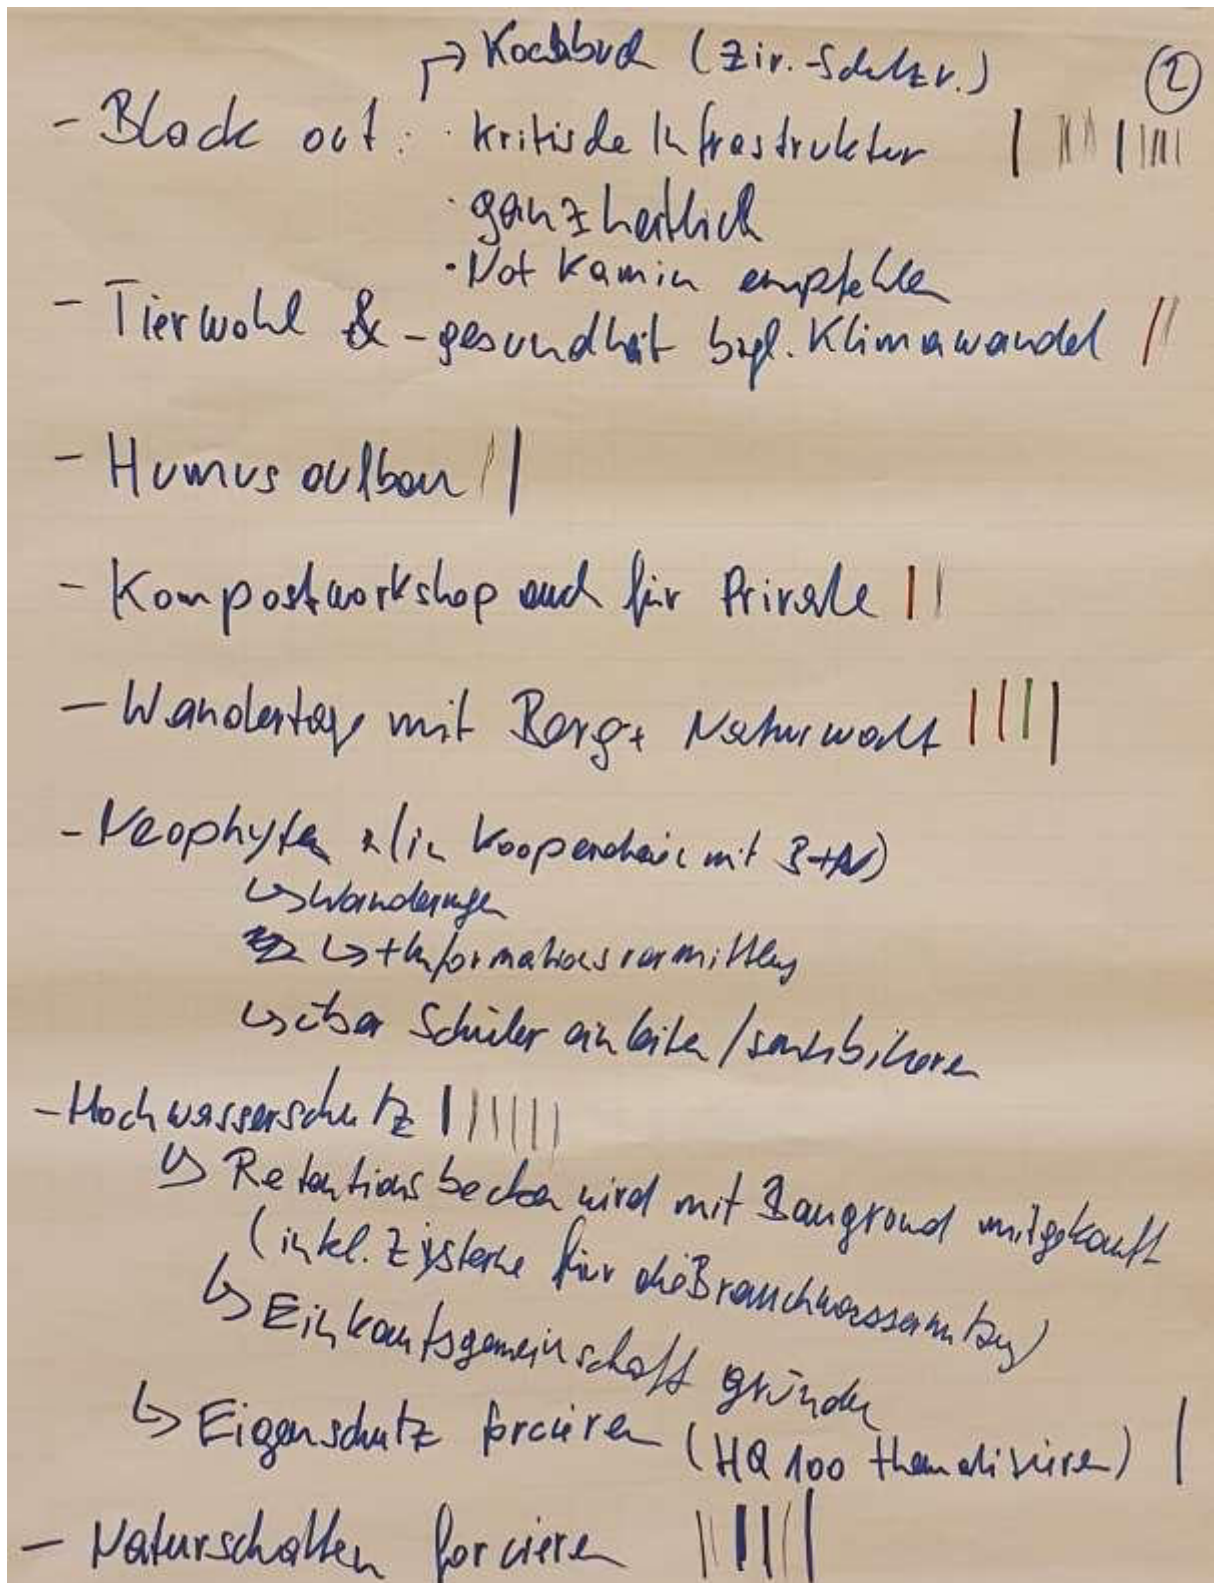 → Kochbuch (Ziv.-Schutzv.)
②
- Black out: · kritische Infrastruktur
· ganzheitlich
· Not Kamin empfehlen
- Tierwohl & -gesundheit bzgl. Klimawandel
- Humusaufbau
- Kompostworkshop auch für Private
- Wandertage mit Berg+ Naturwacht
- Neophyten (in Kooperation mit B+N)
↳ Wanderungen
↳ + Informationsvermittlung
↳ über Schüler einleiten / sensibilisieren
- Hochwasserschutz
↳ Retentionsbecken wird mit Baugrund mitgekauft
(inkl. Zysterne für die Brauchwassernutzung)
↳ Einkaufsgemeinschaft gründen
↳ Eigenschutz forcieren (HQ 100 thematisieren)
- Naturschatten forcieren